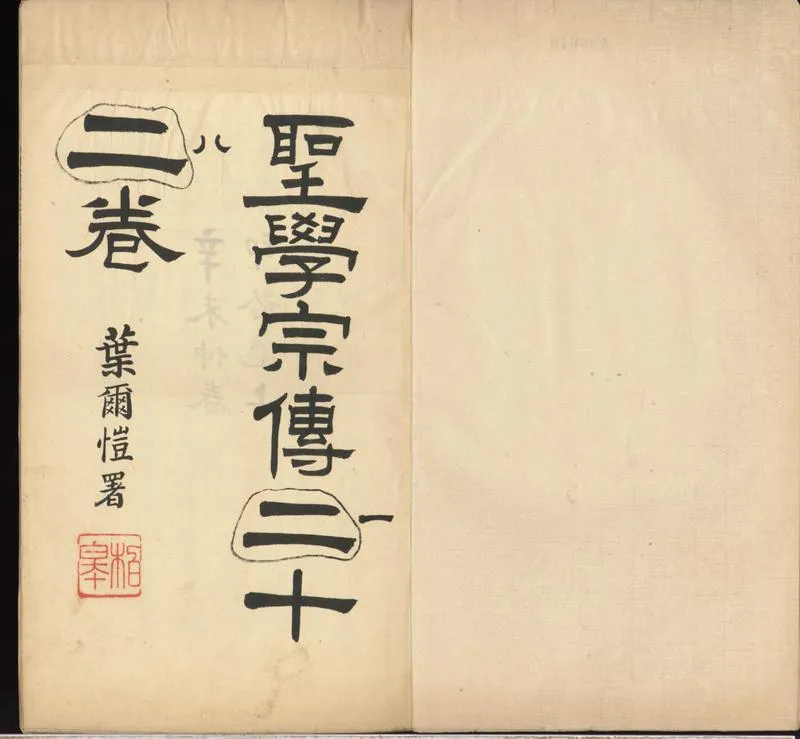 聖學宗傳二十
一
二卷
八
葉爾愷署
柏皋
辛未仲春